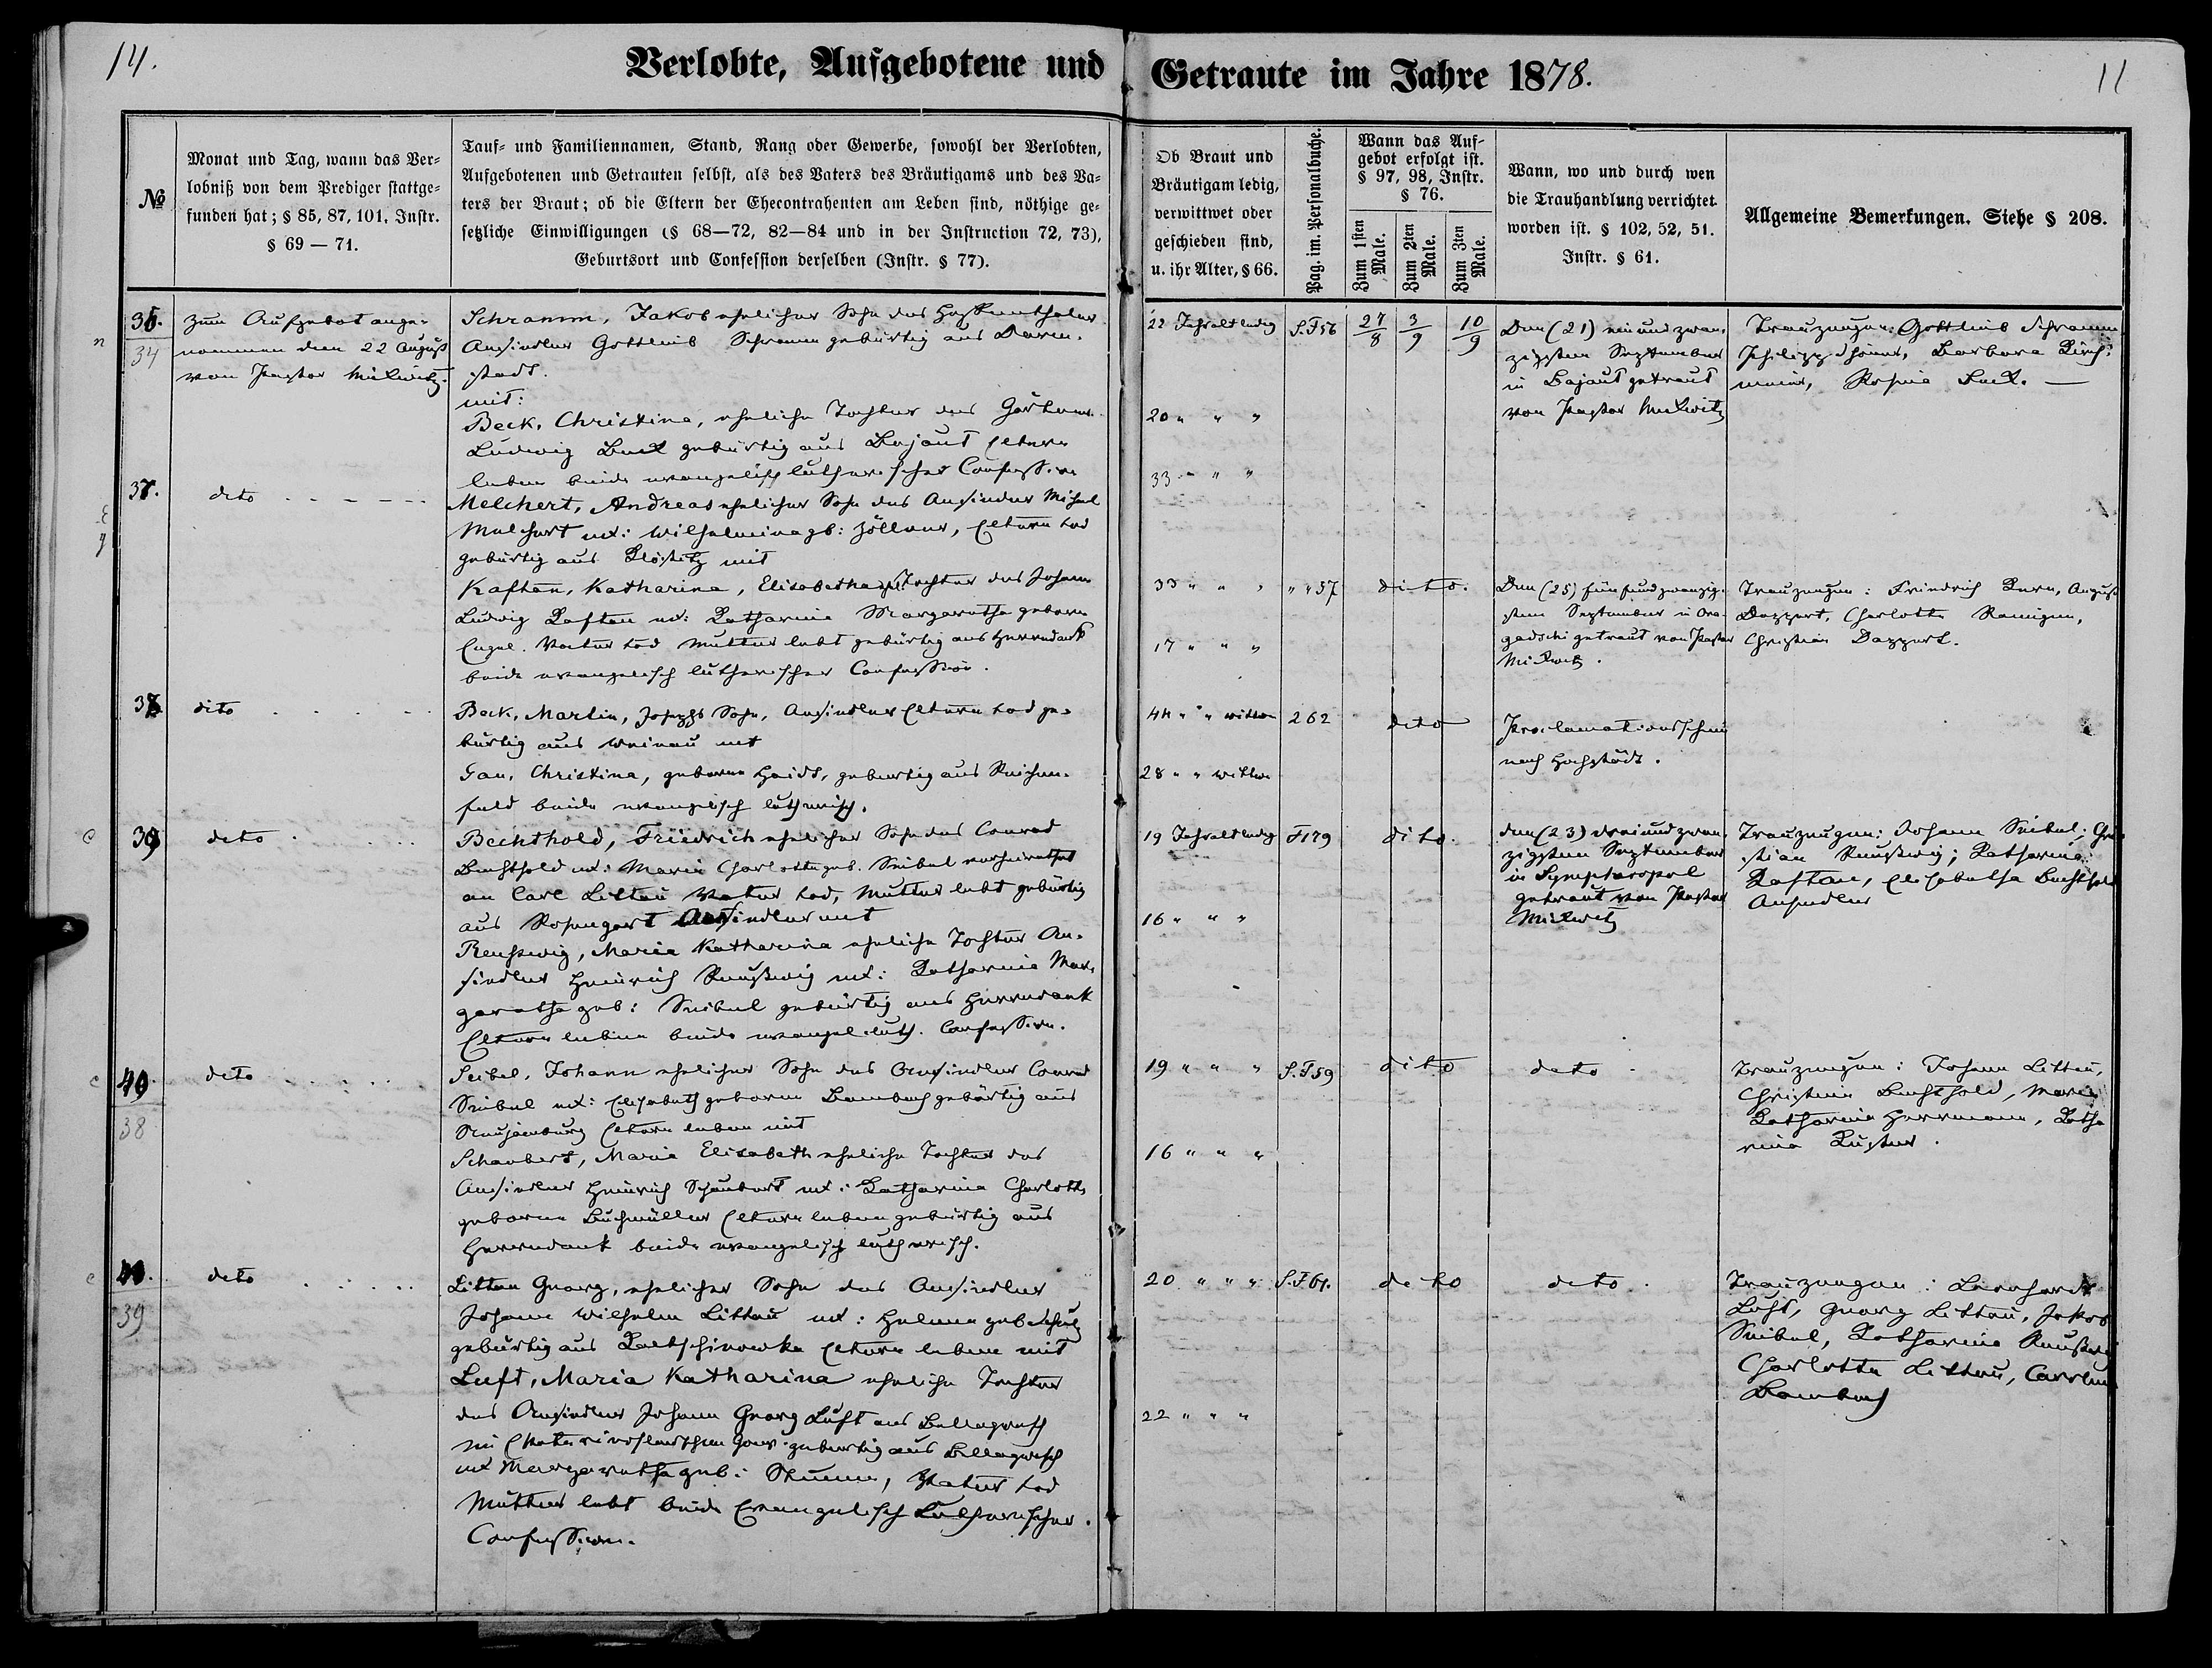 14.
Verlobte, Aufgebotene und Getraute im Jahre 1878.
11
№
Monat und Tag, wann das Ver-
lobniß von dem Prediger stattge-
funden hat; § 85, 87, 101, Instr.
§ 69 — 71.
Tauf- und Familiennamen, Stand, Rang oder Gewerbe, sowohl der Verlobten,
Aufgebotenen und Getrauten selbst, als des Vaters des Bräutigams und des Va-
ters der Braut; ob die Eltern der Ehecontrahenten am Leben sind, nöthige ge-
setzliche Einwilligungen (§ 68—72, 82—84 und in der Instruction 72, 73),
Geburtsort und Confession derselben (Instr. § 77).
Ob Braut und
Bräutigam ledig,
verwittwet oder
geschieden sind,
u. ihr Alter, § 66.
Pag. im. Personalbuche.
Wann das Auf-
gebot erfolgt ist.
§ 97, 98, Instr.
§ 76.
Zum 1sten Male.
Zum 2ten Male.
Zum 3ten Male.
Wann, wo und durch wen
die Trauhandlung verrichtet
worden ist. § 102, 52, 51.
Instr. § 61.
Allgemeine Bemerkungen. Siehe § 208.
n
36.
34
Zum Aufgebot ange-
nommen den 22 August
von Pastor
Schramm, Jakob ehelicher Sohn des Hoffnunthaler
Ansiedler Gottlieb Schramm gebürtig aus Darm-
stadt.
mit:
Beck, Christina, eheliche Tochter des
Ludwig Beck gebürtig aus Bajaut Eltern
leben beide evangelisch lutherischer Confession
22 Jahr alt ledig
20 " " "
S. F 56
27/8
3/9
10/9
Den (21) ein und zwan-
zigsten September
in Bajaut getraut
von Pastor
Trauzeugen: Gottlieb Schramm
Philipp Barbara Kirch-
Rosina Beck. —
37.
dito
Melchert, Andreas ehelicher Sohn des Ansiedler Michael
Melchert ux: Wilhelmina gb: Zöllner, Eltern tod
gebürtig aus Klöstitz mit
Kaftan, Katharina, Elisabetha ehl Tochter des Johann
Ludwig Kaftan ux: Katharina Margaretha geborne
Engel. Vater tod Mutter lebt gebürtig aus Herrndank
beide evangelisch lutherischer Confession.
33 " " "
33 " " "
17 " " "
" " 57
dito.
Den (25) fünfundzwanzig-
sten September in
getraut von Pastor
Trauzeugen: Friedrich Kern, August
Dappert, Charlotte
Christian Dappert.
38
dito
Beck, Martin, Josephs Sohn, Ansiedler Eltern tod ge-
bürtig aus Weinau mit
Gau, Christina, geborne Heidt, gebürtig aus Reichen-
feld beide evangelisch lutherisch.
44 " " wittwer
28 " " wittwe
262
dito
Proclamationsschein
nach Hochstädt.
c
39
dito
Bechthold, Friedrich ehelicher Sohn des Conrad
Bechthold ux: Maria Charlotte geb. Seibel verheirathet
an Carl Littau Vater tod, Mutter lebt gebürtig
aus Rosengart Ansiedler mit
Reuszwig, Maria Katharina eheliche Tochter An-
siedler Heinrich Reußwig ux: Katharina Mar-
garetha geb: Seibel gebürtig aus Herrndank
Eltern leben beide evangel. luth. Confession.
19 Jahr alt ledig
16 " " "
F 179
dito.
den (23) drei und zwan-
zigsten September
in Sympheropol
getraut von Pastor
Trauzeugen: Johann Seibel; Chri-
stian Reußwig; Katharina
Kaftan, Elisabetha Bechthold
Ansiedler
c
40
38
dito
Seibel, Johann ehelicher Sohn des Ansiedler Conrad
Seibel ux: Elisabeth geborne Bambach gebürtig aus
Eltern leben mit
Schaubert, Maria Elisabeth eheliche Tochter des
Ansiedler Heinrich Schaubert ux: Katharina Charlotte
geborne Buchmüller Eltern leben gebürtig aus
Herrndank beide evangelisch lutherisch.
19 " " "
16 " " "
S. F 59
dito
dito
Trauzeugen: Johann Littau,
Christina Bechthold, Maria
Katharina Herrmann, Katha
rina Küster.
c
41.
39
dito
Littau Georg, ehelicher Sohn des Ansiedler
Johann Wilhelm Littau ux: Helena geb Schulz
gebürtig aus Eltern leben mit
Luft, Maria Katharina eheliche Tochter
des Ansiedler Johann Georg Luft aus Bellagwesch
im Ekaterinoslawschen Gouv. gebürtig aus Bellagwesch
ux Margaretha geb: Vater tod
Mutter lebt beide Evangelisch Lutherischer
Confession.
20 " " "
22 " " "
S. F 61.
dito
dito.
Trauzeugen: Bernhardt
Luft, Georg Littau, Jakob
Seibel, Katharina Reußwig
Charlotte Littau, Carolina
Bambach